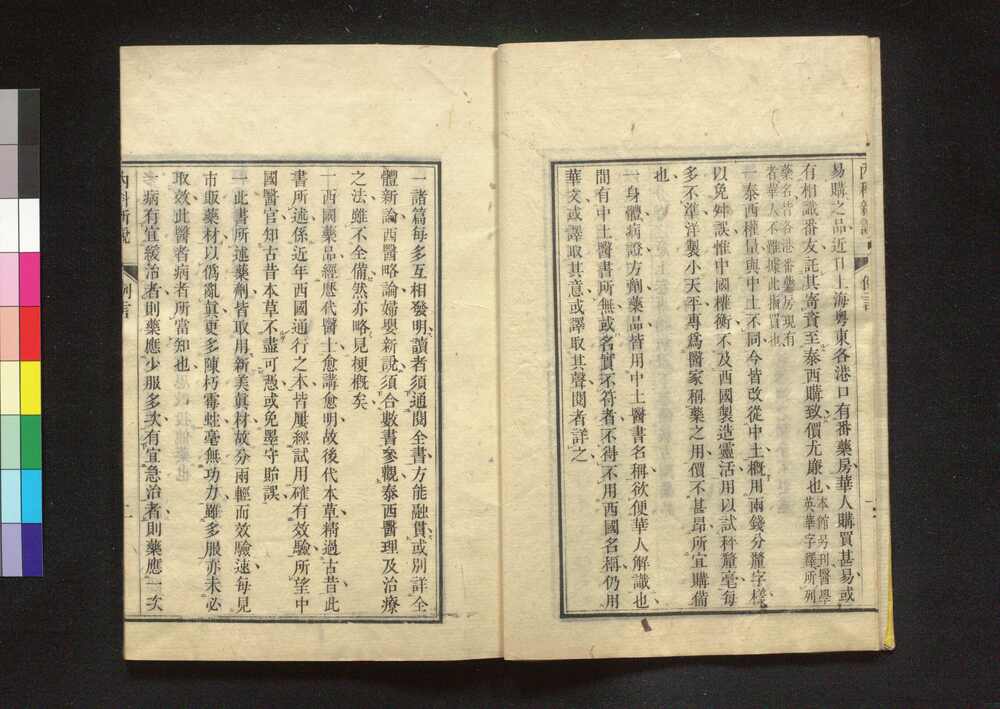 內科新說 例言 二
易購之品近日上海粤東各港口有番藥房華人購買甚易或
有相識番友託其寄賚至泰西購致價尤廉也本館另刊醫學英華字釋所列
藥名皆各港番藥房現有
者華人不難據此指買也
一泰西權量與中土不同今皆改從中土概用兩錢分釐字樣
以免舛誤惟中國權衡不及西國製造靈活用以試秤釐毫每
多不準洋製小天平專爲醫家稱藥之用價不甚昂所宜購備
也
一身體病證方劑藥品皆用中土醫書名稱欲便華人解識也
間有中土醫書所無或名實不符者不得不用西國名稱仍用
華文或譯取其意或譯取其聲閱者詳之
一諸篇每多互相發明讀者須通閱全書方能融貫或別詳全
體新論西醫略論婦嬰新說須合數書參觀泰西醫理及治療
之法雖不全備然亦略見梗概矣
一西國藥品經歷代醫士愈講愈明故後代本草稍過古昔此
書所述係近年西國通行之本皆屢經試用確有效驗所望中
國醫官知古昔本草不盡可憑或免墨守貽誤
一此書所述藥劑皆取用新美眞材故分兩輕而效驗速每見
市販藥材以僞亂眞更多陳朽霉蛀毫無功力雖多服亦未必
取效此醫者病者所當知也
一病有宜緩治者則藥應少服多次有宜急治者則藥應一次
內科新說 例言 二